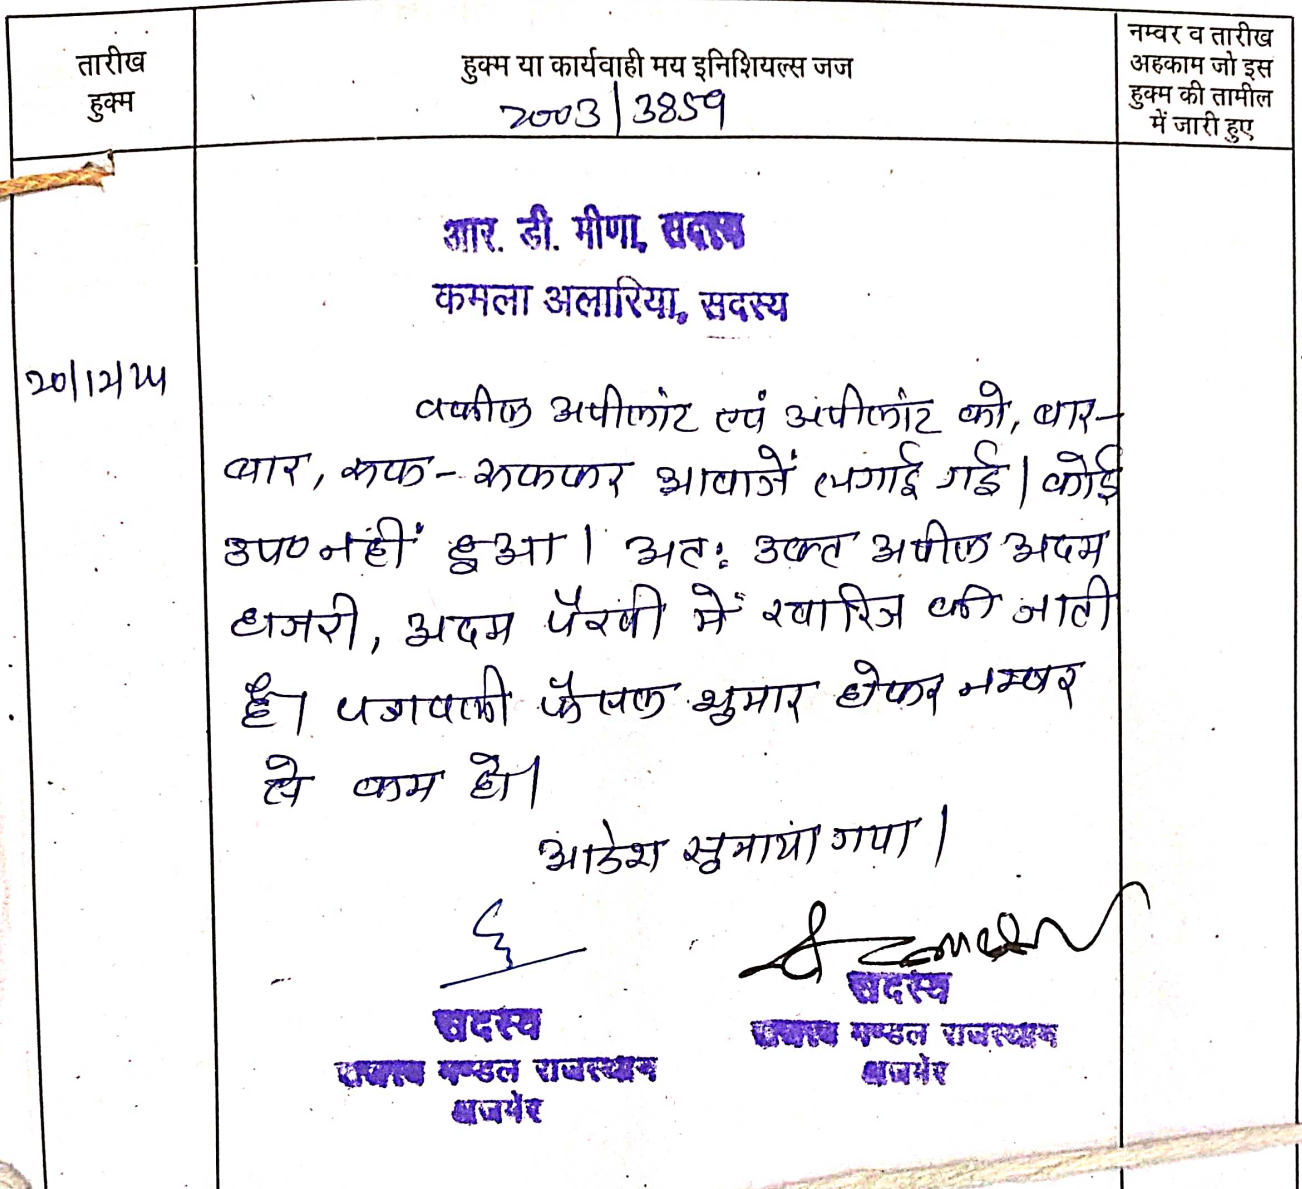 तारीख
हुक्म
हुक्म या कार्यवाही मय इनिशियल्स जज
2003/3859
नम्वर व तारीख
अहकाम जो इस
हुक्म की तामील
में जारी हुए
आर. डी. मीणा, सदस्य
कमला अलारिया, सदस्य
20/12/24
वकील अपीलांट एवं अपीलांट को, बार-
बार, रूक-रूककर आवाजें लगाई गई। कोई
उप० नहीं हुआ। अतः उक्त अपील अदम
हाजरी, अदम पैरवी में खारिज की जाती
है। पत्रावली फैसल शुमार होकर नम्बर
से कम हो।
आदेश सुनाया गया।
सदस्य
राजस्व मण्डल राजस्थान
अजमेर
सदस्य
राजस्व मण्डल राजस्थान
अजमेर